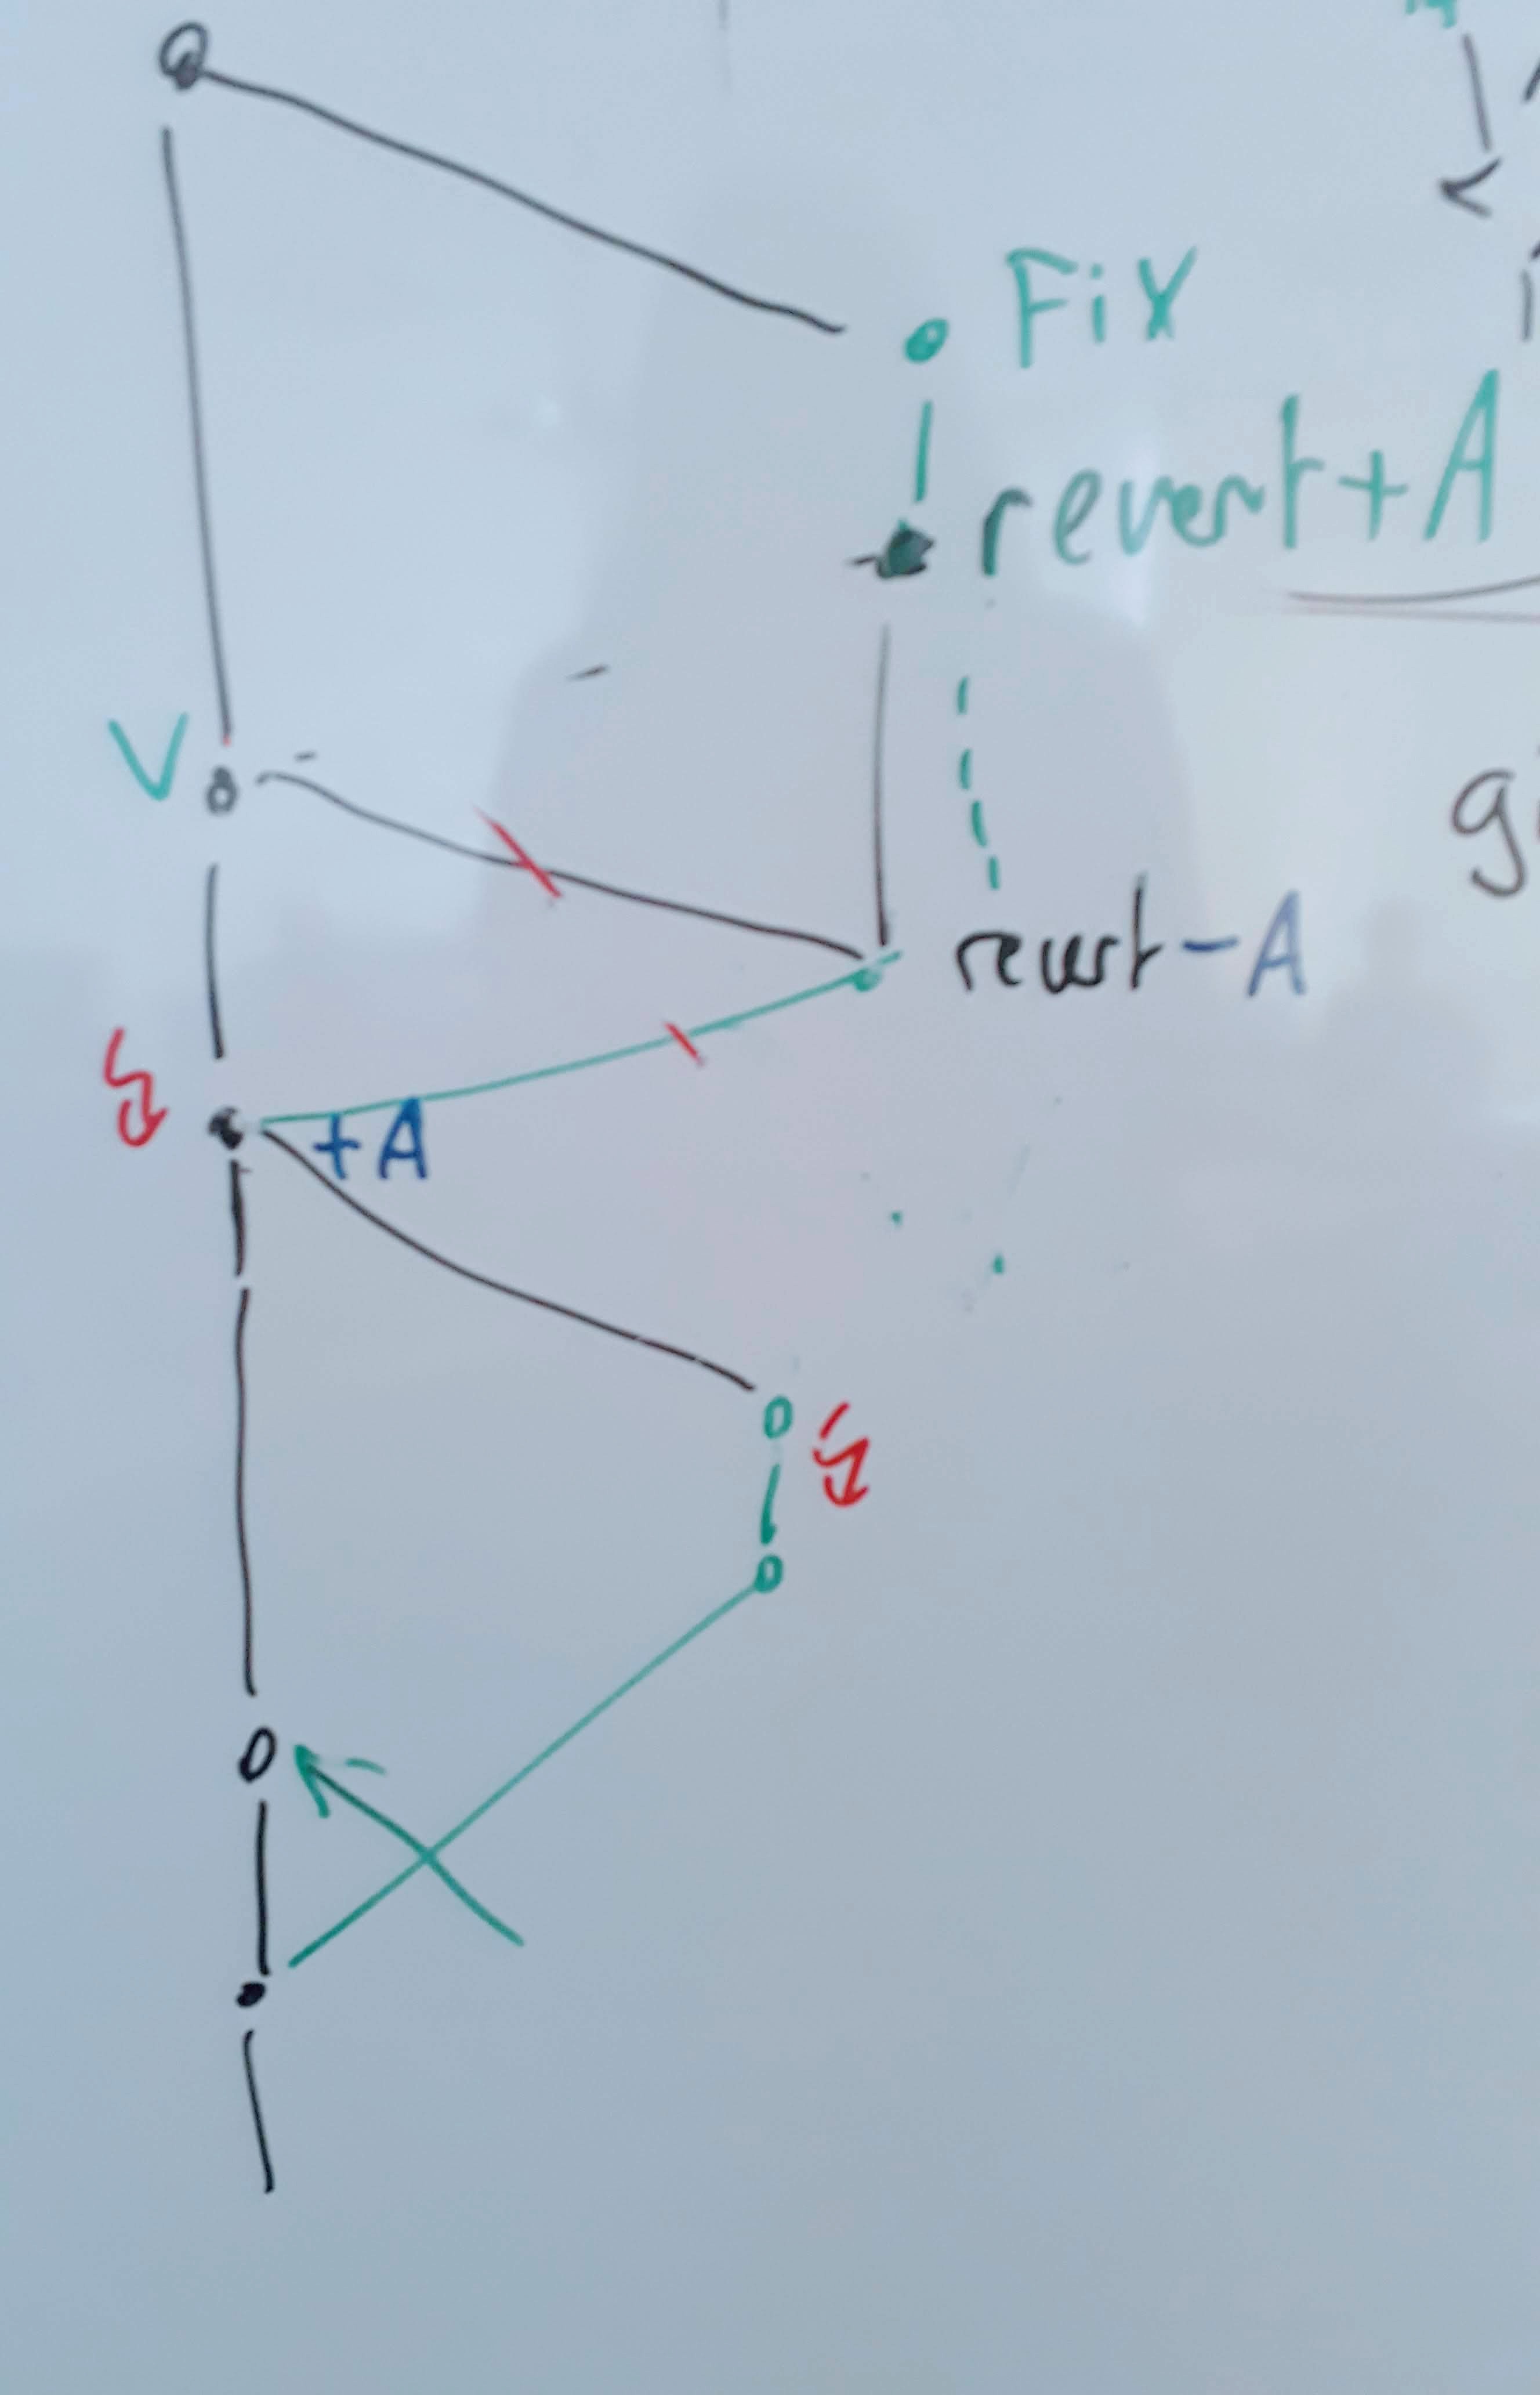 Fix
revert + A
V
revert - A
+A